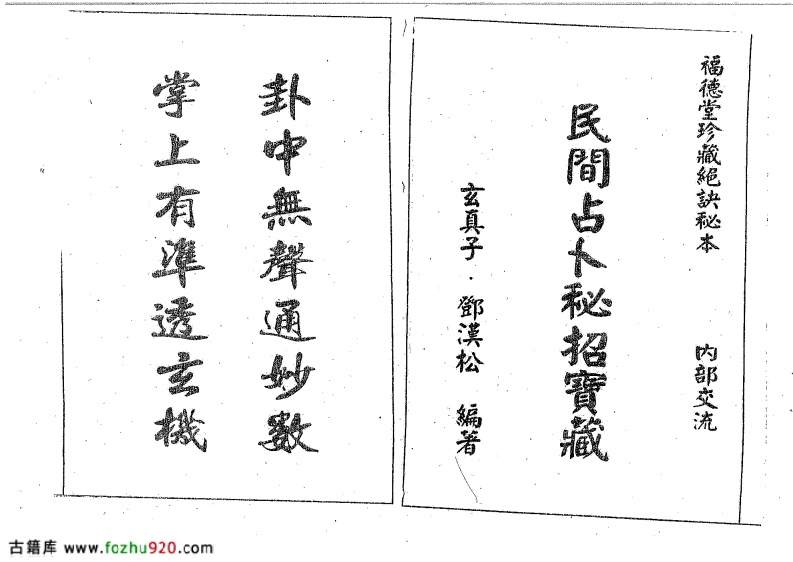 福德堂珍藏絕訣秘本 內部交流
民間占卜秘招寶藏
玄真子·鄧漢松 編著
卦中無聲通妙數
掌上有準透玄機
古籍库 www.fozhu920.com